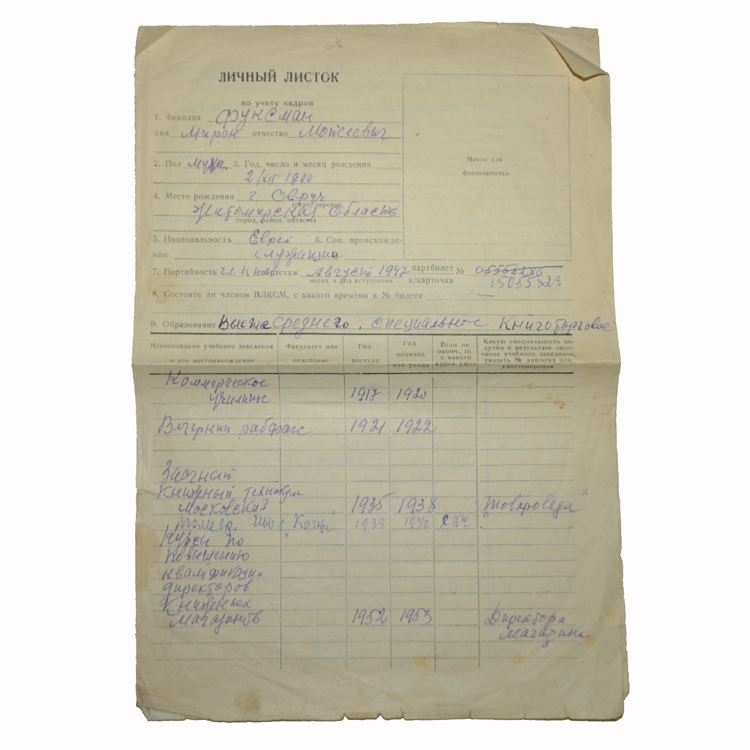 ЛИЧНЫЙ ЛИСТОК
по учету кадров
1. Фамилия Фуксман
имя Мирон отчество Моисеевич
2. Пол муж. 3. Год, число и месяц рождения
2/XII
4. Место рождения г. Овруч
Житомирская Область
город, район, область)
5. Национальность Еврей 6. Соц. происхожде-
ние служащий
7. Партийность стаж Август 1947 партбилет №
месяц и год вступления к/карточка
8. Состоите ли членом ВЛКСМ, с какого времени и № билета —
9. Образование Выше среднего, специальное Книготорговое
Место для
фотокарточки
Наименование учебного заведения
и его местонахождение
Факультет или
отделение
Год
поступл.
Год
окончан.
или ухода
Если не
оконч., то
с какого
курса ушел
Какую специальность по-
лучил в результате окон-
чания учебного заведения,
указать № диплома или
удостоверения
Коммерческое
училище 1917 1920
Вечерний рабфак 1921 1922
Заочный
Книжный техникум
Московский 1935 1938 "Товароведа"
1939 1940
Курсы по
повышению
квалификации
директоров
Книжных
магазинов 1952 1953 Директора
магазина